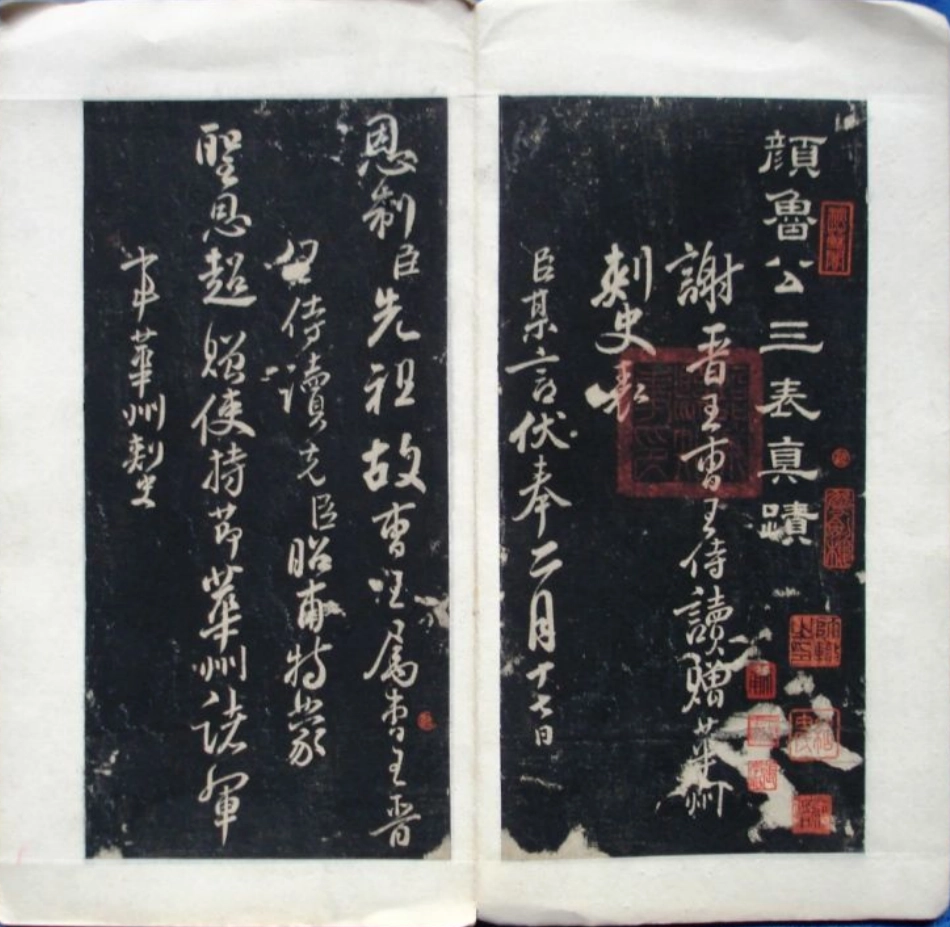 顏魯公三表真蹟
謝晋王曹王侍讀贈華州
刺史表
臣某言伏奉二月十七日
恩制臣先祖故曹王属曹王晋
王侍讀先臣昭甫特蒙
聖恩超贈使持莭華州諸軍
事華州刺史